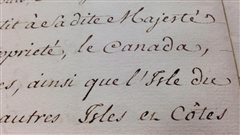 tit à la dite Majesté
opriété, le Canada,
es, ainsi que l'Isle du
autres Isles et Côtes